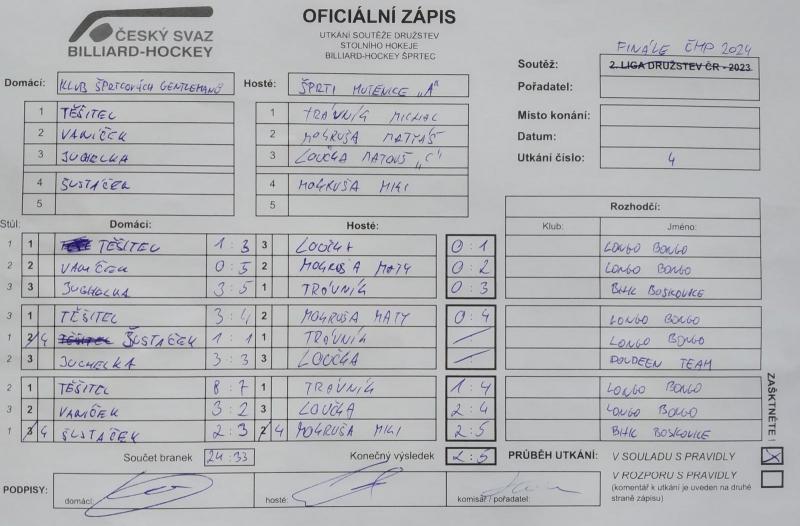 ČESKÝ SVAZ
BILLIARD-HOCKEY
OFICIÁLNÍ ZÁPIS
UTKÁNÍ SOUTĚŽE DRUŽSTEV
STOLNÍHO HOKEJE
BILLIARD-HOCKEY ŠPRTEC
FINÁLE ČMP 2024
Soutěž: 2. LIGA DRUŽSTEV ČR - 2023
Pořadatel:
Místo konání:
Datum:
Utkání číslo: 4
Domácí: KLUB ŠPRTCOVÝCH GENTLEMANŮ Hosté: ŠPRTI MUTĚNICE „A"
1 TĚŠITEL 1 TRÁVNÍK MICHAL
2 VANÍČEK 2 MOKRUŠA MATYÁŠ
3 JUCHELKA 3 LOUČKA MATOUŠ „C"
4 ŠUSTÁČEK 4 MOKRUŠA MIKI
5 5
Rozhodčí:
Klub: Jméno:
Stůl: Domácí: Hosté:
1 1 TĚŠITEL 1 : 3 3 LOUČKA 0 : 1 LONGO BONGO
2 2 VANÍČEK 0 : 5 2 MOKRUŠA MATY 0 : 2 LONGO BONGO
3 3 JUCHELKA 3 : 5 1 TRÁVNÍK 0 : 3 BHK BOSKOVICE
3 1 TĚŠITEL 3 : 4 2 MOKRUŠA MATY 0 : 4 LONGO BONGO
1 2/4 TĚŠITEL ŠUSTÁČEK 1 : 1 1 TRÁVNÍK : LONGO BONGO
2 3 JUCHELKA 3 : 3 3 LOUČKA : DOUDEEN TEAM
2 1 TĚŠITEL 8 : 7 1 TRÁVNÍK 1 : 4 LONGO BONGO
3 2 VANÍČEK 3 : 2 3 LOUČKA 2 : 4 LONGO BONGO
1 3/4 ŠUSTÁČEK 2 : 3 2/4 MOKRUŠA MIKI 2 : 5 BHK BOSKOVICE
ZAŠKTNĚTE !
Součet branek 24 : 33 Konečný výsledek 2 : 5 PRŮBĚH UTKÁNÍ: V SOULADU S PRAVIDLY X
V ROZPORU S PRAVIDLY
(komentář k utkání je uveden na druhé
straně zápisu)
PODPISY: domácí: hosté: komisař / pořadatel: